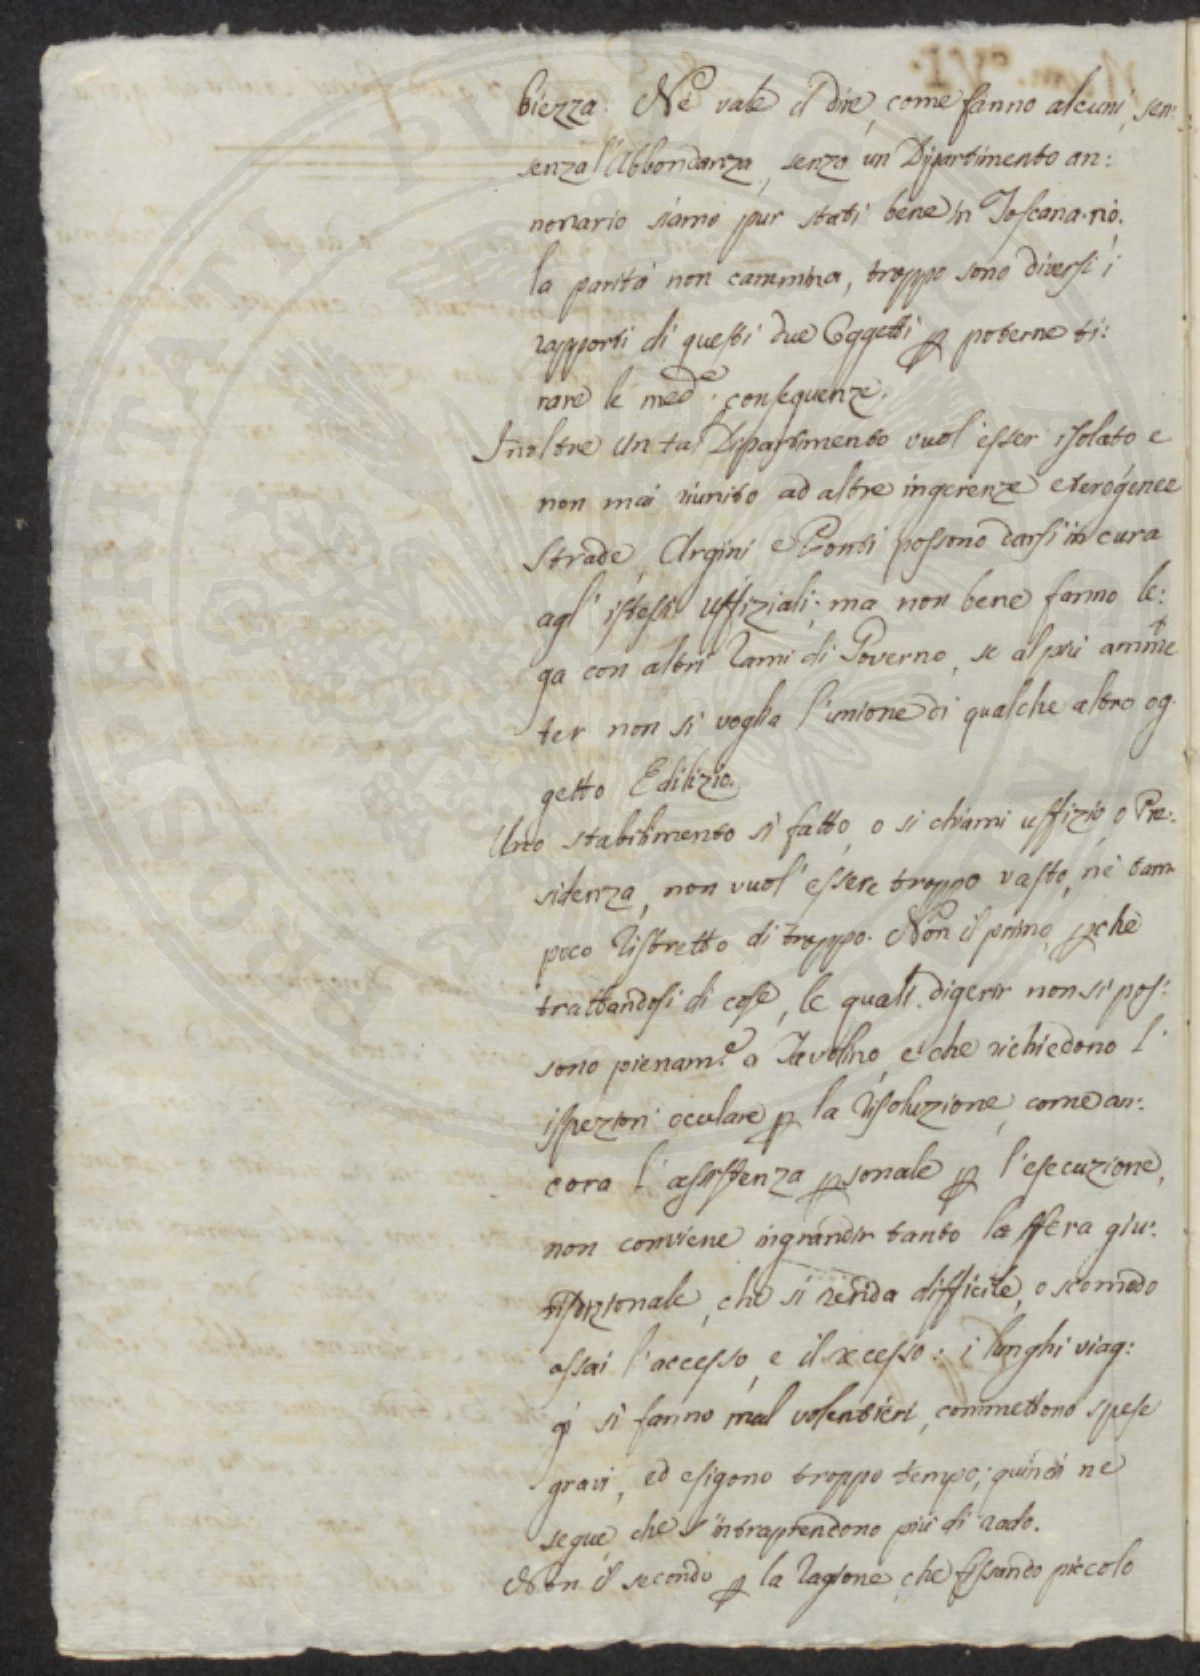 biezza. Nè vale il dire, come fanno alcuni, sen:
senza l'Abbondanza, senza un Dipartimento an:
nonario siamo pur stati bene in Toscana. nò.
la parità non cammina, troppo sono diversi i
rapporti di questi due Oggetti p poterne ti:
rare le med.e conseguenze.
Inoltre un tal Dipartimento vuol esser isolato e
non mai riunito ad altre ingerenze eterogenee
strade, Argini e Ponti possono darsi in cura
agl' istessi uffiziali; ma non bene fanno le:
ga con altri rami di Governo, se al più amme
ter non si voglia l'unione di qualche altro og
getto Edilizio.
Uno stabilimento sì fatto, o si chiami uffizio, o Pre:
sidenza, non vuol' essere troppo vasto, nè tam
poco ristretto di troppo. Non il primo, pche
trattandosi di cose, le quali digerir non si pos:
sono pienam.e a Tavolino, e che richiedono l'
ispezion oculare p la risoluzione, come an:
cora l' assistenza psonale p l'esecuzione,
non conviene ingrandir tanto la sfera giu:
risdizionale, che si renda difficile, o scomodo
assai l'accesso, e il recesso: i lunghi viag:
gi si fanno mal volentieri, commettono spese
gravi, ed esigono troppo tempo; quindi ne
segue, che s'intraprendono più di rado.
Non il secondo p la ragione, che fissando piccolo
PROSPERITATI PUBLICAE AUGENDAE